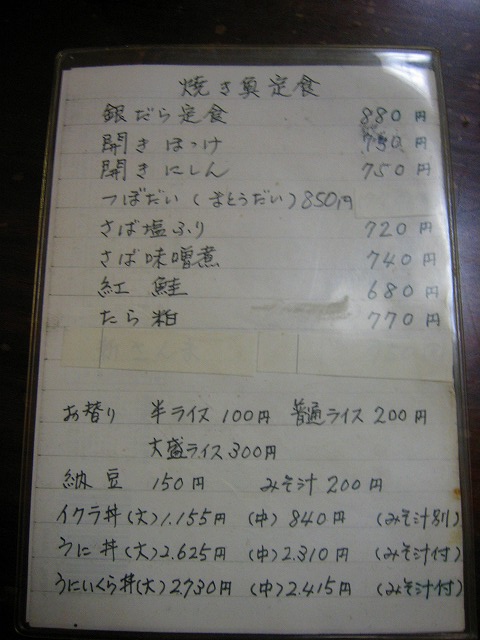 焼き魚定食
銀だら定食 880円
開きほっけ 750円
開きにしん 750円
つぼだい(まとうだい)850円
さば塩ふり 720円
さば味噌煮 740円
紅鮭 680円
たら粕 770円
お替り 半ライス100円 普通ライス200円
大盛ライス300円
納豆 150円 みそ汁 200円
イクラ丼(大)1.155円 (中)840円 (みそ汁別)
うに丼(大)2.625円 (中)2.310円 (みそ汁付)
うにいくら丼(大)2.730円 (中)2.415円 (みそ汁付)